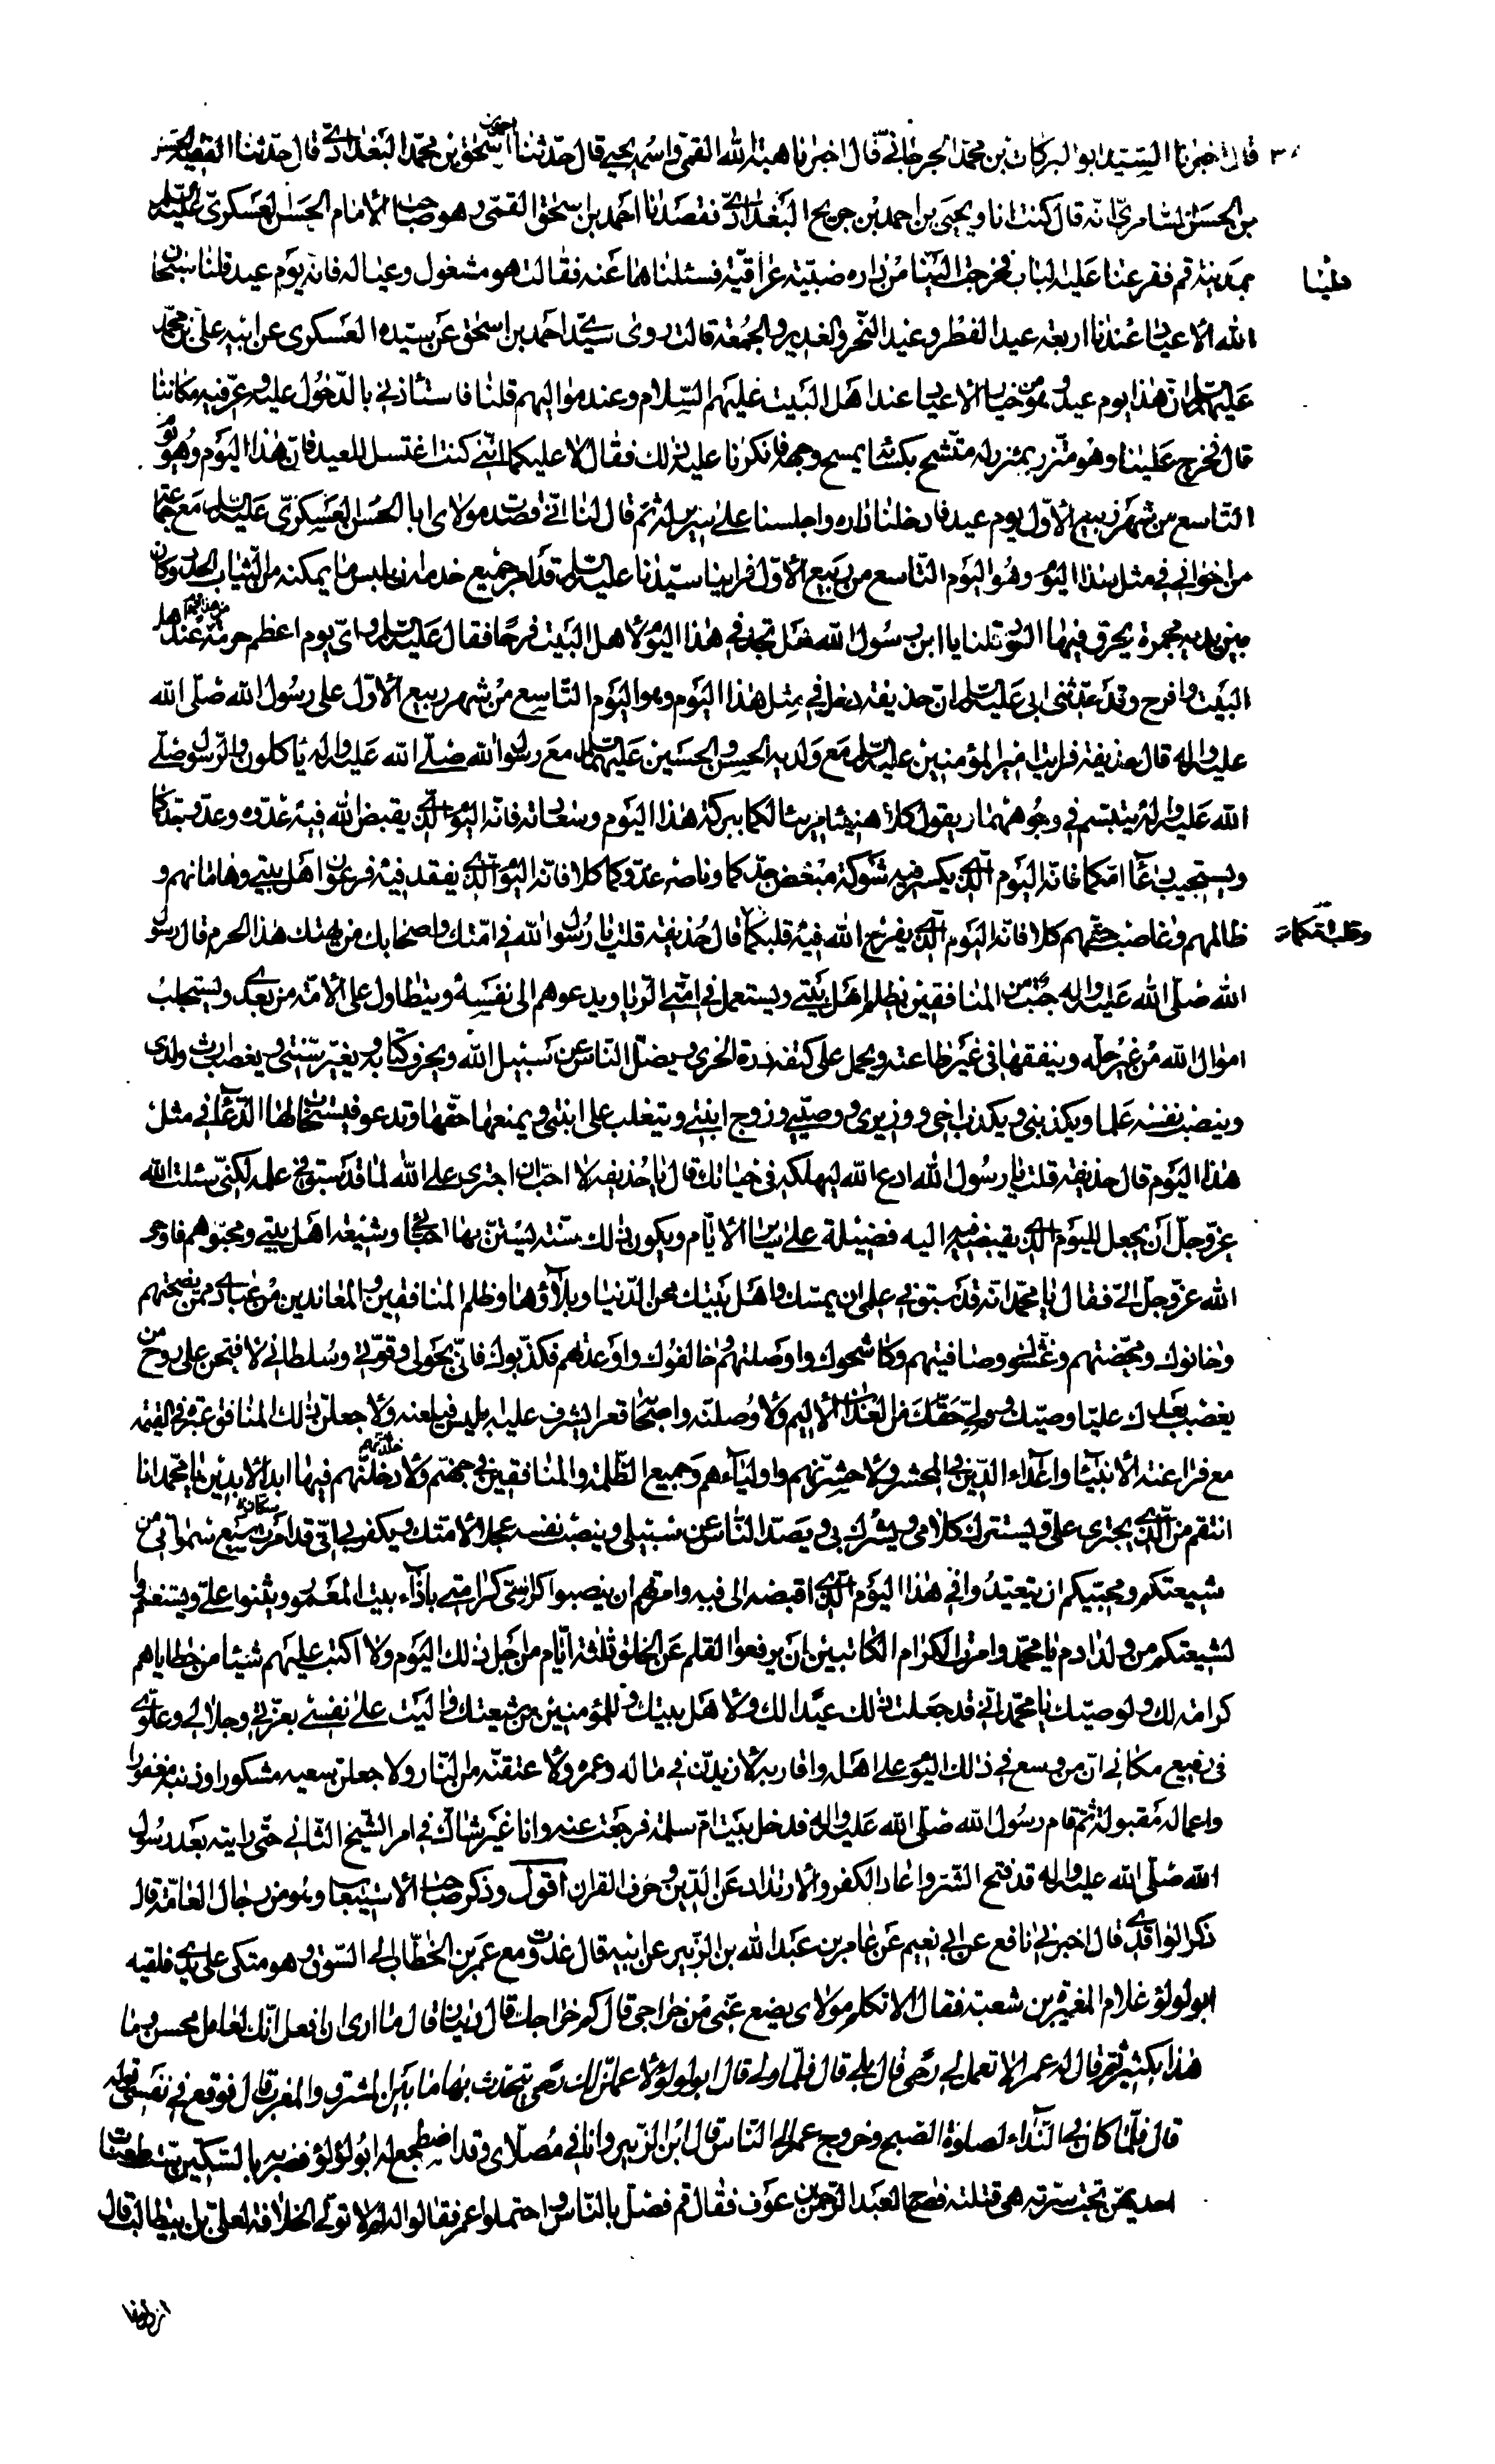 قال اخبرنا السيد ابو البركات بن محمد الجرجاني قال اخبرنا هبة الله القمي واسمه يحيى قال حدثنا اسحق بن محمد البغدادي قال حدثنا الفقيه الحسن
بن الحسن السامري انه قال كنت انا ويحيى بن احمد بن جريح البغدادي فقصدنا احمد بن اسحق القمي وهو صاحب الامام الحسن العسكري عليه السلم
بمدينة قم فقرعنا عليه الباب فخرجت الينا من داره صبية عراقية فسئلناها عنه فقالت هو مشغول وعياله فانه يوم عيد قلنا سبحان
قلنا
الله الاعياد عندنا اربعة عيد الفطر وعيد النحر والغدير والجمعة قالت روى سيدي احمد بن اسحق عن سيده العسكري عن ابيه علي بن محمد
عليهما السلم ان هذا يوم عيد وهو من خيار الاعياد عند اهل البيت عليهم السلام وعند مواليهم قلنا فاستأذني بالدخول عليه وعرفيه مكاننا
قال فخرج علينا وهو متزر بمئزر له متشح بكسائه يمسح وجهه فانكرنا عليه ذلك فقال لا عليكما انني كنت اغتسل للعيد فان هذا اليوم وهو يوم
التاسع من شهر ربيع الاول يوم عيد فادخلنا داره واجلسنا على سرير له ثم قال لنا اني قصدت مولاي ابا الحسن العسكري عليه السلم مع جماعة
من اخواني في مثل هذا اليوم وهو اليوم التاسع من ربيع الاول فراينا سيدنا عليه السلم قد امر جميع خدمه ان يلبس ما يمكنه من الثياب الجدد وكان
بين يديه مجمرة يحرق فيها العود قلنا يا ابن رسول الله هل تجد في هذا اليوم لاهل البيت فرحا فقال عليه السلم واي يوم اعظم حرمة من هذا اليوم عند اهل
البيت وافرح وقد حدثني ابي عليه السلم ان حذيفة دخل في مثل هذا اليوم وهو اليوم التاسع من شهر ربيع الاول على رسول الله صلى الله
عليه واله قال حذيفة فرايت امير المؤمنين عليه السلم مع ولديه الحسن والحسين عليهما السلم مع رسول الله صلى الله عليه واله ياكلون والرسول صلى
الله عليه واله يتبسم في وجوههما ويقول كلا هنيئا مريئا لكما ببركة هذا اليوم وسعادته فانه اليوم الذي يقبض الله فيه عدوه وعدو جدكما
ويستجيب دعاء امكما فانه اليوم الذي يكسر فيه شوكة مبغض جدكما وناصر عدوكما كلا فانه اليوم الذي يفقد فيه فرعون اهل بيتي وهامانهم و
ظالمهم وغاصب حقهم كلا فانه اليوم الذي يفرح الله فيه قلبكما قال حذيفة قلت يا رسول الله في امتك واصحابك من يهتك هذا الحرم قال رسول
الله صلى الله عليه واله جبت من المنافقين يظلم اهل بيتي ويستعمل في امتي الربا ويدعوهم الى نفسه ويتطاول على الامة من بعدي ويستجلب
اموال الله من غير حله وينفقها في غير طاعته ويحمل على كتفه درة الخزي ويضل الناس عن سبيل الله ويحرف كتابه ويغير سنتي ويغصب ارث ولدي
وينصب نفسه علما ويكذبني ويكذب اخي ووزيري ووصيي وزوج ابنتي ويتغلب على ابنتي ويمنعها حقها وتدعو فيستجاب لها الدعاء في مثل
هذا اليوم قال حذيفة قلت يا رسول الله ادع الله ليهلكه في حياتك قال يا حذيفة لا احب ان اجتري على الله لما قد سبق في علمه لكني سئلت الله
عز وجل ان يجعل لليوم الذي يقبضه فيه اليه فضيلة على ساير الايام ويكون ذلك سنة يستن بها احبائي وشيعة اهل بيتي ومحبوهم فاوحى
الله عز وجل الي فقال يا محمد انه قد سبق في علمي ان يمسك واهل بيتك محن الدنيا وبلاؤها وظلم المنافقين والمعاندين من عبادي ممن نصحتهم
وخانوك ومحضتهم وغشوك وصافيتهم وكاشحوك واوصلتهم وخالفوك واوعدتهم فكذبوك فاني بحولي وقوتي وسلطاني لافتحن على روح من
يغضب بعدك عليا وصيك وولي حقك من العذاب الاليم ولاوصلنه واصحابه قعرا يشرف عليه ابليس فيلعنه ولاجعلن ذلك المنافق عبرة في القيمة
مع فراعنة الانبياء واعداء الدين في المحشر ولاحشرنهم واولياءهم وجميع الظلمة والمنافقين في جهنم ولادخلنهم فيها ابد الابدين يا محمد انا
انتقم من الذي يجتري علي ويستترك كلامي ويشرك بي ويصد الناس عن سبيلي وينصب نفسه عجلا لامتك ويكفر بي اني قد امرت سبع سمواتي من
شيعتكم ومحبيكم ان يتعيدوا في هذا اليوم الذي اقبضه الي فيه وامرتهم ان ينصبوا كراسي كرامتي بازاء بيت المعمور ويثنوا علي ويستغفروا
لشيعتكم من ولد ادم يا محمد وامرت الكرام الكاتبين ان يرفعوا القلم عن الخلق ثلثة ايام من اجل ذلك اليوم ولا اكتب عليهم شيئا من خطاياهم
كرامة لك ولوصيك يا محمد اني قد جعلت ذلك عيدا لك ولاهل بيتك وللمؤمنين من شيعتك واليت على نفسي بعزتي وجلالي وعلوي
في رفيع مكاني ان من وسع في ذلك اليوم على اهله واقاربه لازيدن في ماله وعمره ولاعتقنه من النار ولاجعلن سعيه مشكورا وذنبه مغفورا
واعماله مقبولة ثم قام رسول الله صلى الله عليه واله فدخل بيت ام سلمة فرجعت عنه وانا غير شاك في امر الشيخ الثاني حتى رايته بعد رسول
الله صلى الله عليه واله قد فتح الشر واعاد الكفر والارتداد عن الدين وحرف القران اقول وذكر صاحب الاستيعاب وهو من رجال العامة قال
ذكر الواقدي قال اخبرني نافع عن ابي نعيم عن عامر بن عبد الله بن الزبير عن ابيه قال غدوت مع عمر بن الخطاب الى السوق وهو متكئ على يدي فلقيه
ابو لؤلؤ غلام المغيرة بن شعبة فقال الا تكلم مولاي يضع عني من خراجي قال كم خراجك قال دينار قال ما ارى ان افعل انك لعامل محسن وما
هذا بكثير ثم قال له عمر الا تعمل لي رحى قال بلى قال فلما ولى قال ابو لؤلؤ لاعملن لك رحى يتحدث بها ما بين المشرق والمغرب قال فوقع في نفسي قوله
قال فلما كان في النداء لصلوة الصبح وخروج عمر الى الناس قال ابن الزبير وانا في مصلاي وقد اضطجع له ابو لؤلؤ فضربه بالسكين ست طعنات
احديهن تحت سرته هي قتلته فصاح اين عبد الرحمن بن عوف فقال قم فصل بالناس واحتملوا عمر فقالوا له الا تولي الخلافة لعلي بن ابيطالب قال